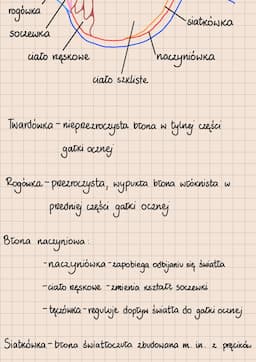 rogówka
siatkówka
soczewka
ciało rzęskowe
naczyniówka
ciało szkliste
Twardówka - nieprzezroczysta błona w tylnej części
gałki ocznej
Rogówka - przezroczysta, wypukła błona włóknista w
przedniej części gałki ocznej
Błona naczyniowa:
- naczyniówka - zapobiega odbijaniu się światła
- ciało rzęskowe - zmienia kształt soczewki
- tęczówka - reguluje dopływ światła do gałki ocznej
Siatkówka - błona światłoczuła zbudowana m. in. z pręcików